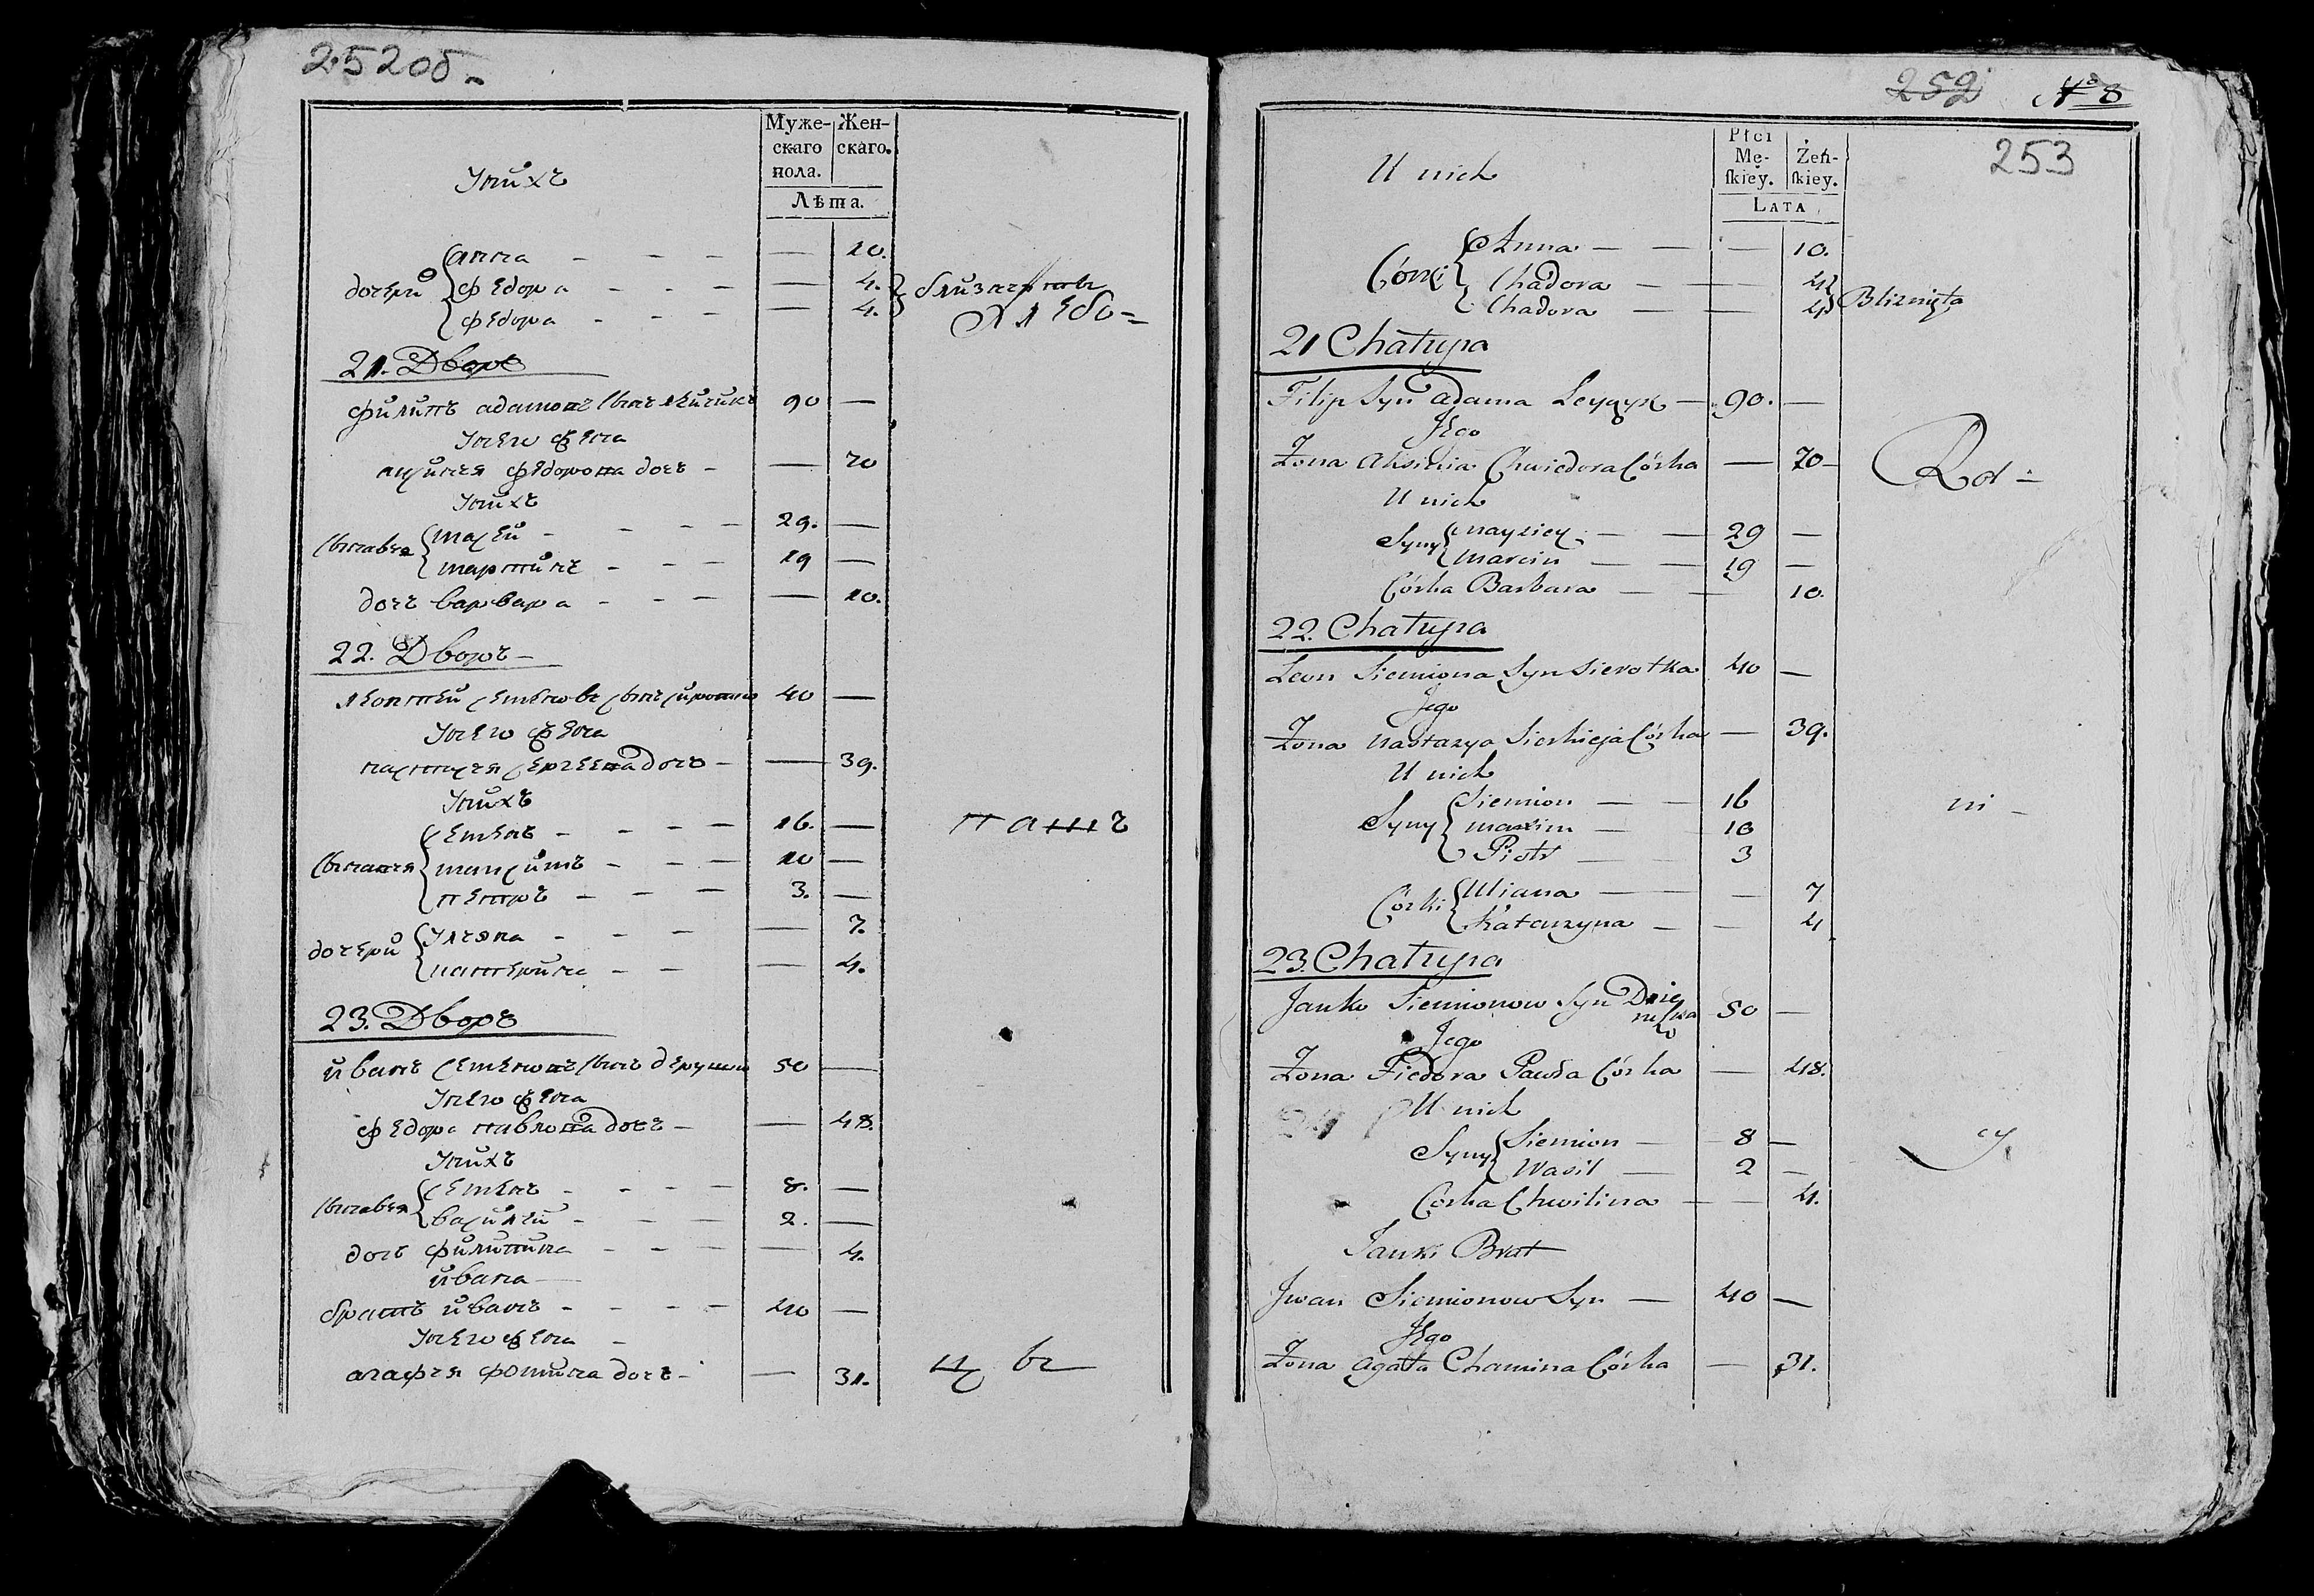 252об
Муже-
скаго
пола.
Жен-
скаго.
Лѣта.
У них
дочери
анна - - - — 10.
федора - - - — 4.
федора - - - — 4.
близнята
Хлебо=
21. Дворъ
филипъ адамовъ сынъ 90 —
У него жена
аксинья федорова дочь - — 70
У нихъ
сыновья
мосей - - - - 29. —
мартинъ - - - 19 —
дочь варвара - - - — 10.
22. Дворъ —
леонтей семеновъ сынъ сиротка 40 —
У него жена
настасья сергеева дочь - — 39.
У нихъ
сыновья
семенъ - - - - 16. —
максимъ - - - 10 —
петръ - - - 3. —
дочери
ульяна - - - — 7.
катерина - - — 4.
пашъ
23. Дворъ
иванъ семеновъ сынъ 50 —
У него жена
федора павлова дочь - — 48.
У нихъ
сыновья
семенъ - - - - 8. —
василей - - - 2. —
дочь филипина - - - — 4.
ивана
братъ иванъ - - - - 40 —
У него жена -
агафья фомина дочь - — 31.
252 № 8
253
U nich
Płci
Mę-
skiey.
Żeń-
skiey.
LATA
Córki
Anna — — — 10.
Chadora — — 4
Chadora — — 4
Bliznięta
21 Chałupa
Filip Syn Adama Leyczyk — 90. —
Jego
Żona Aksinia Chwiedora Córka — 70 —
U nich
Rot -
Syny
Mayziey — — 29 —
Marcin — — 19 —
Córka Barbara — — 10.
22. Chałupa
Leon Siemiona Syn Sierotka 40 —
Jego
Żona Nastazya Sierhieja Córka — 39.
U nich
Syny
Siemion — — 16
Maxim — 10
Piotr — 3
mi -
Córki
Uliana — — 7
Katarzyna — — 4
23. Chałupa
Janko Siemionow Syn 50 —
Jego
Żona Fiedora Pawła Córka — 48.
U nich
Syny
Siemion — 8 —
Wasil — 2 —
Córka Chwilina — — 4.
Janki Brat
Iwan Siemionow Syn — 40 —
Jego
Żona Agata Chamina Córka — 31.